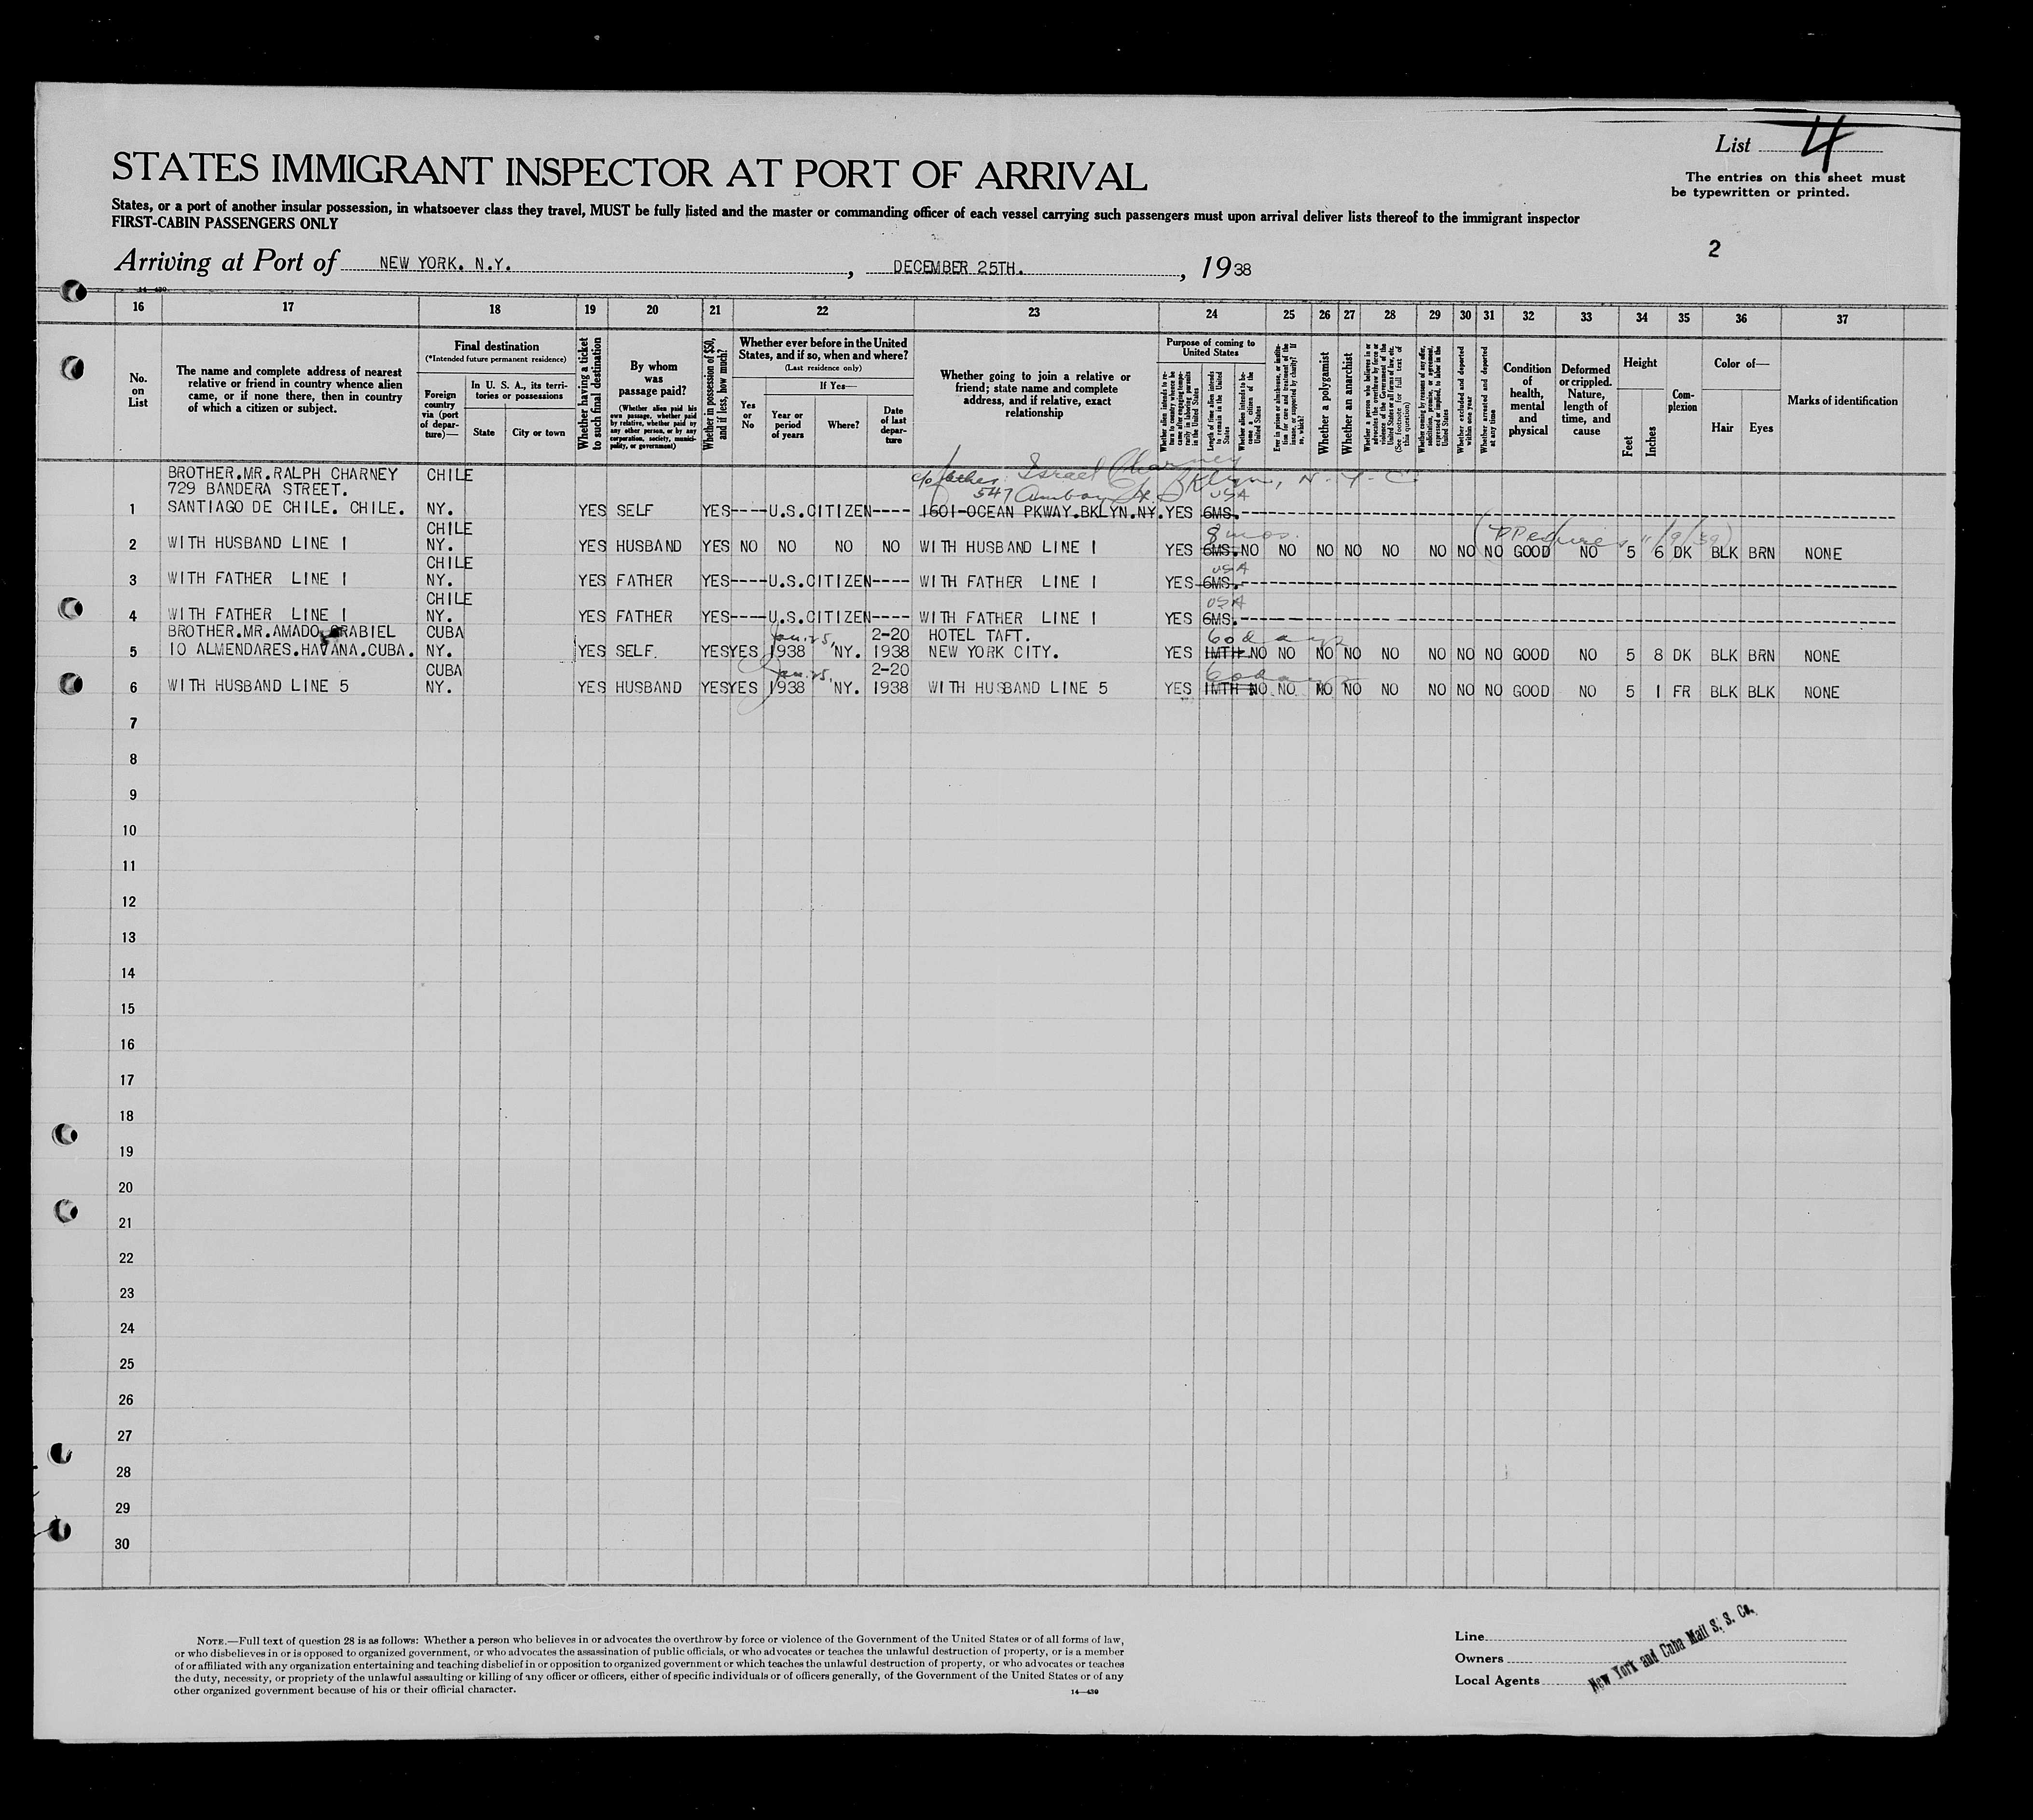 List 4
STATES IMMIGRANT INSPECTOR AT PORT OF ARRIVAL
The entries on this sheet must
be typewritten or printed.
States, or a port of another insular possession, in whatsoever class they travel, MUST be fully listed and the master or commanding officer of each vessel carrying such passengers must upon arrival deliver lists thereof to the immigrant inspector
FIRST-CABIN PASSENGERS ONLY
2
Arriving at Port of NEW YORK. N.Y. , DECEMBER 25TH. , 1938
14-430
16 17 18 19 20 21 22 23 24 25 26 27 28 29 30 31 32 33 34 35 36 37
No. on List
The name and complete address of nearest
relative or friend in country whence alien
came, or if none there, then in country
of which a citizen or subject.
Final destination
(*Intended future permanent residence)
Foreign country via (port of departure)—
In U. S. A., its territories or possessions
State
City or town
Whether having a ticket to such final destination
By whom was passage paid?
(Whether alien paid his own passage, whether paid by relative, whether paid by any other person, or by any corporation, society, municipality, or government)
Whether in possession of $50, and if less, how much?
Whether ever before in the United
States, and if so, when and where?
(Last residence only)
Yes or No
If Yes—
Year or period of years
Where?
Date of last departure
Whether going to join a relative or
friend; state name and complete
address, and if relative, exact
relationship
Purpose of coming to
United States
Whether alien intends to return to country whence he came after engaging temporarily in laboring pursuits in the United States
Length of time alien intends to remain in the United States
Whether alien intends to become a citizen of the United States
Ever in prison or almshouse, or institution for care and treatment of the insane, or supported by charity? If so, which?
Whether a polygamist
Whether an anarchist
Whether a person who believes in or advocates the overthrow by force or violence of the Government of the United States or all forms of law, etc. (See footnote for full text of this question)
Whether coming by reasons of any offer, solicitation, promise, or agreement, expressed or implied, to labor in the United States
Whether excluded and deported within one year
Whether arrested and deported at any time
Condition of health, mental and physical
Deformed or crippled. Nature, length of time, and cause
Height
Feet
Inches
Complexion
Color of—
Hair
Eyes
Marks of identification
c/o father: Israel Charney
BROTHER.MR.RALPH CHARNEY CHILE
729 BANDERA STREET. 547 Amboy St. Bklyn, N-Y-C USA
1 SANTIAGO DE CHILE. CHILE. NY. YES SELF YES----U.S.CITIZEN---- 1601-OCEAN PKWAY.BKLYN.NY. YES 6MS.
CHILE 8 mos. (PP expires 11/9/39)
2 WITH HUSBAND LINE 1 NY. YES HUSBAND YES NO NO NO NO WITH HUSBAND LINE 1 YES 6MS. NO NO NO NO NO NO NO NO GOOD NO 5 6 DK BLK BRN NONE
CHILE USA
3 WITH FATHER LINE 1 NY. YES FATHER YES----U.S.CITIZEN---- WITH FATHER LINE 1 YES 6MS.
CHILE USA
4 WITH FATHER LINE 1 NY. YES FATHER YES----U.S.CITIZEN---- WITH FATHER LINE 1 YES 6MS.
BROTHER.MR.AMADO GRABIEL CUBA Jan. 25, 2-20 HOTEL TAFT. 60 days
5 10 ALMENDARES.HAVANA.CUBA. NY. YES SELF. YES YES 1938 NY. 1938 NEW YORK CITY. YES 1MTH NO NO NO NO NO NO NO NO GOOD NO 5 8 DK BLK BRN NONE
CUBA Jan. 25, 2-20 60 days
6 WITH HUSBAND LINE 5 NY. YES HUSBAND YES YES 1938 NY. 1938 WITH HUSBAND LINE 5 YES 1MTH NO NO NO NO NO NO NO NO GOOD NO 5 1 FR BLK BLK NONE
7
8
9
10
11
12
13
14
15
16
17
18
19
20
21
22
23
24
25
26
27
28
29
30
NOTE.—Full text of question 28 is as follows: Whether a person who believes in or advocates the overthrow by force or violence of the Government of the United States or of all forms of law,
or who disbelieves in or is opposed to organized government, or who advocates the assassination of public officials, or who advocates or teaches the unlawful destruction of property, or is a member
of or affiliated with any organization entertaining and teaching disbelief in or opposition to organized government or which teaches the unlawful destruction of property, or who advocates or teaches
the duty, necessity, or propriety of the unlawful assaulting or killing of any officer or officers, either of specific individuals or of officers generally, of the Government of the United States or of any
other organized government because of his or their official character.
14-430
Line
Owners
Local Agents
New York and Cuba Mail S. S. Co.